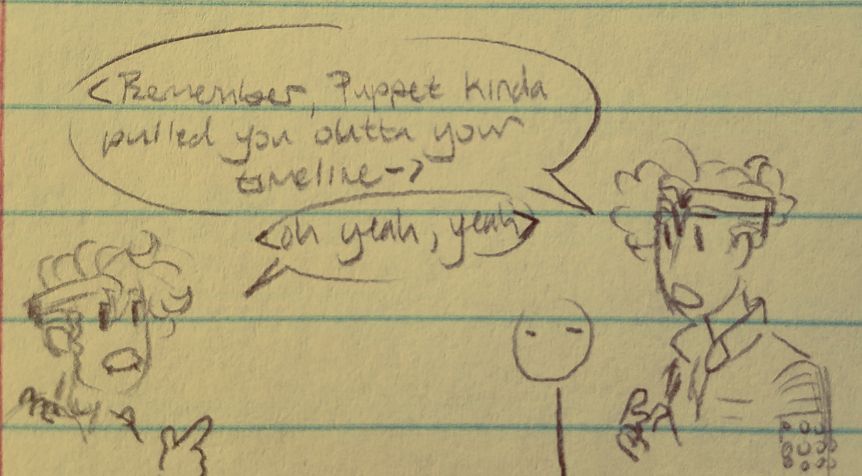 <Remember, Puppet kinda
pulled you outta your
timeline->
<oh yeah, yeah>